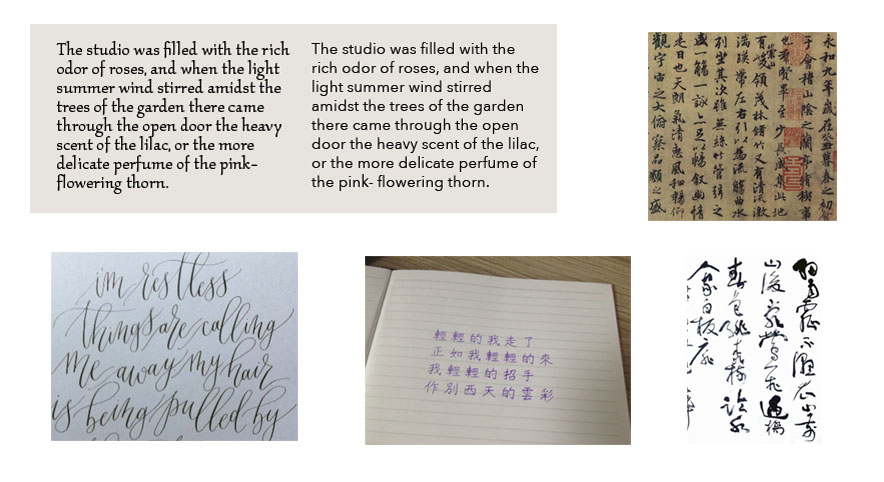 The studio was filled with the rich
odor of roses, and when the light
summer wind stirred amidst the
trees of the garden there came
through the open door the heavy
scent of the lilac, or the more
delicate perfume of the pink-
flowering thorn.
The studio was filled with the
rich odor of roses, and when the
light summer wind stirred
amidst the trees of the garden
there came through the open
door the heavy scent of the lilac,
or the more delicate perfume of
the pink- flowering thorn.
永和九年歲在癸丑暮春之初會
于會稽山陰之蘭亭脩稧事
也羣賢畢至少長咸集此地
有崇山峻領茂林脩竹又有清流激
湍暎帶左右引以為流觴曲水
列坐其次雖無絲竹管弦之
盛一觴一詠亦足以暢敘幽情
是日也天朗氣清惠風和暢仰
觀宇宙之大俯察品類之盛
im restless
things are calling
me away my hair
is being pulled by
輕輕的我走了
正如我輕輕的來
我輕輕的招手
作別西天的雲彩
雨霏霏不濕衣山前
山後亂鶯飛過橋
春色緋桃樹臨水
人家白板扉